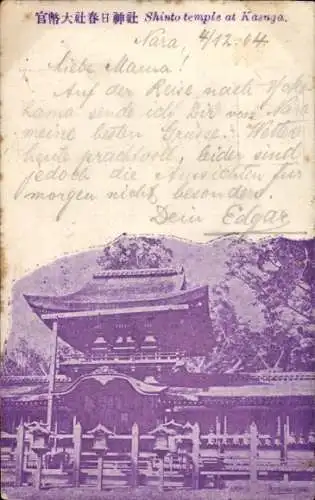 官幣大社春日神社 Shinto temple at Kasuga.
Nara, 4/12.04
Liebe Mama!
Auf der Reise nach Yoko
hama sende ich Dir von Nara
meine besten Grüsse. Wetter
heute prachtvoll, leider sind
jedoch die Aussichten für
morgen nicht besonders.
Dein Edgar